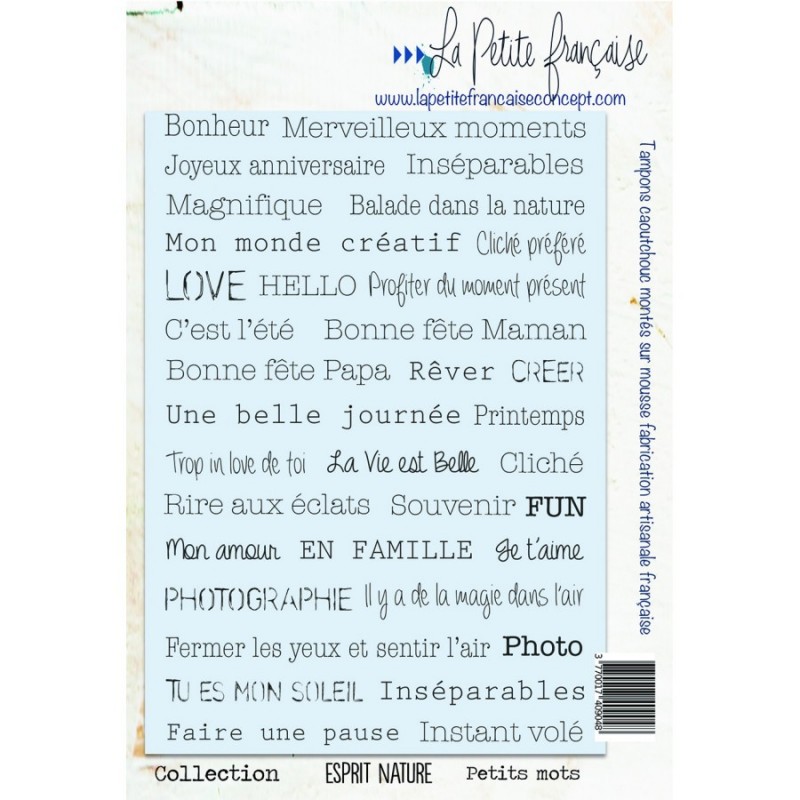 La Petite française
www.lapetitefrancaiseconcept.com
Bonheur Merveilleux moments
Joyeux anniversaire Inséparables
Magnifique Balade dans la nature
Mon monde créatif Cliché préféré
LOVE HELLO Profiter du moment présent
C'est l'été Bonne fête Maman
Bonne fête Papa Rêver CREER
Une belle journée Printemps
Trop in love de toi La Vie est Belle Cliché
Rire aux éclats Souvenir FUN
Mon amour EN FAMILLE Je t'aime
PHOTOGRAPHIE Il y a de la magie dans l'air
Fermer les yeux et sentir l'air Photo
TU ES MON SOLEIL Inséparables
Faire une pause Instant volé
Collection ESPRIT NATURE Petits mots
Tampons caoutchouc montés sur mousse fabrication artisanale française
3 770017 409048